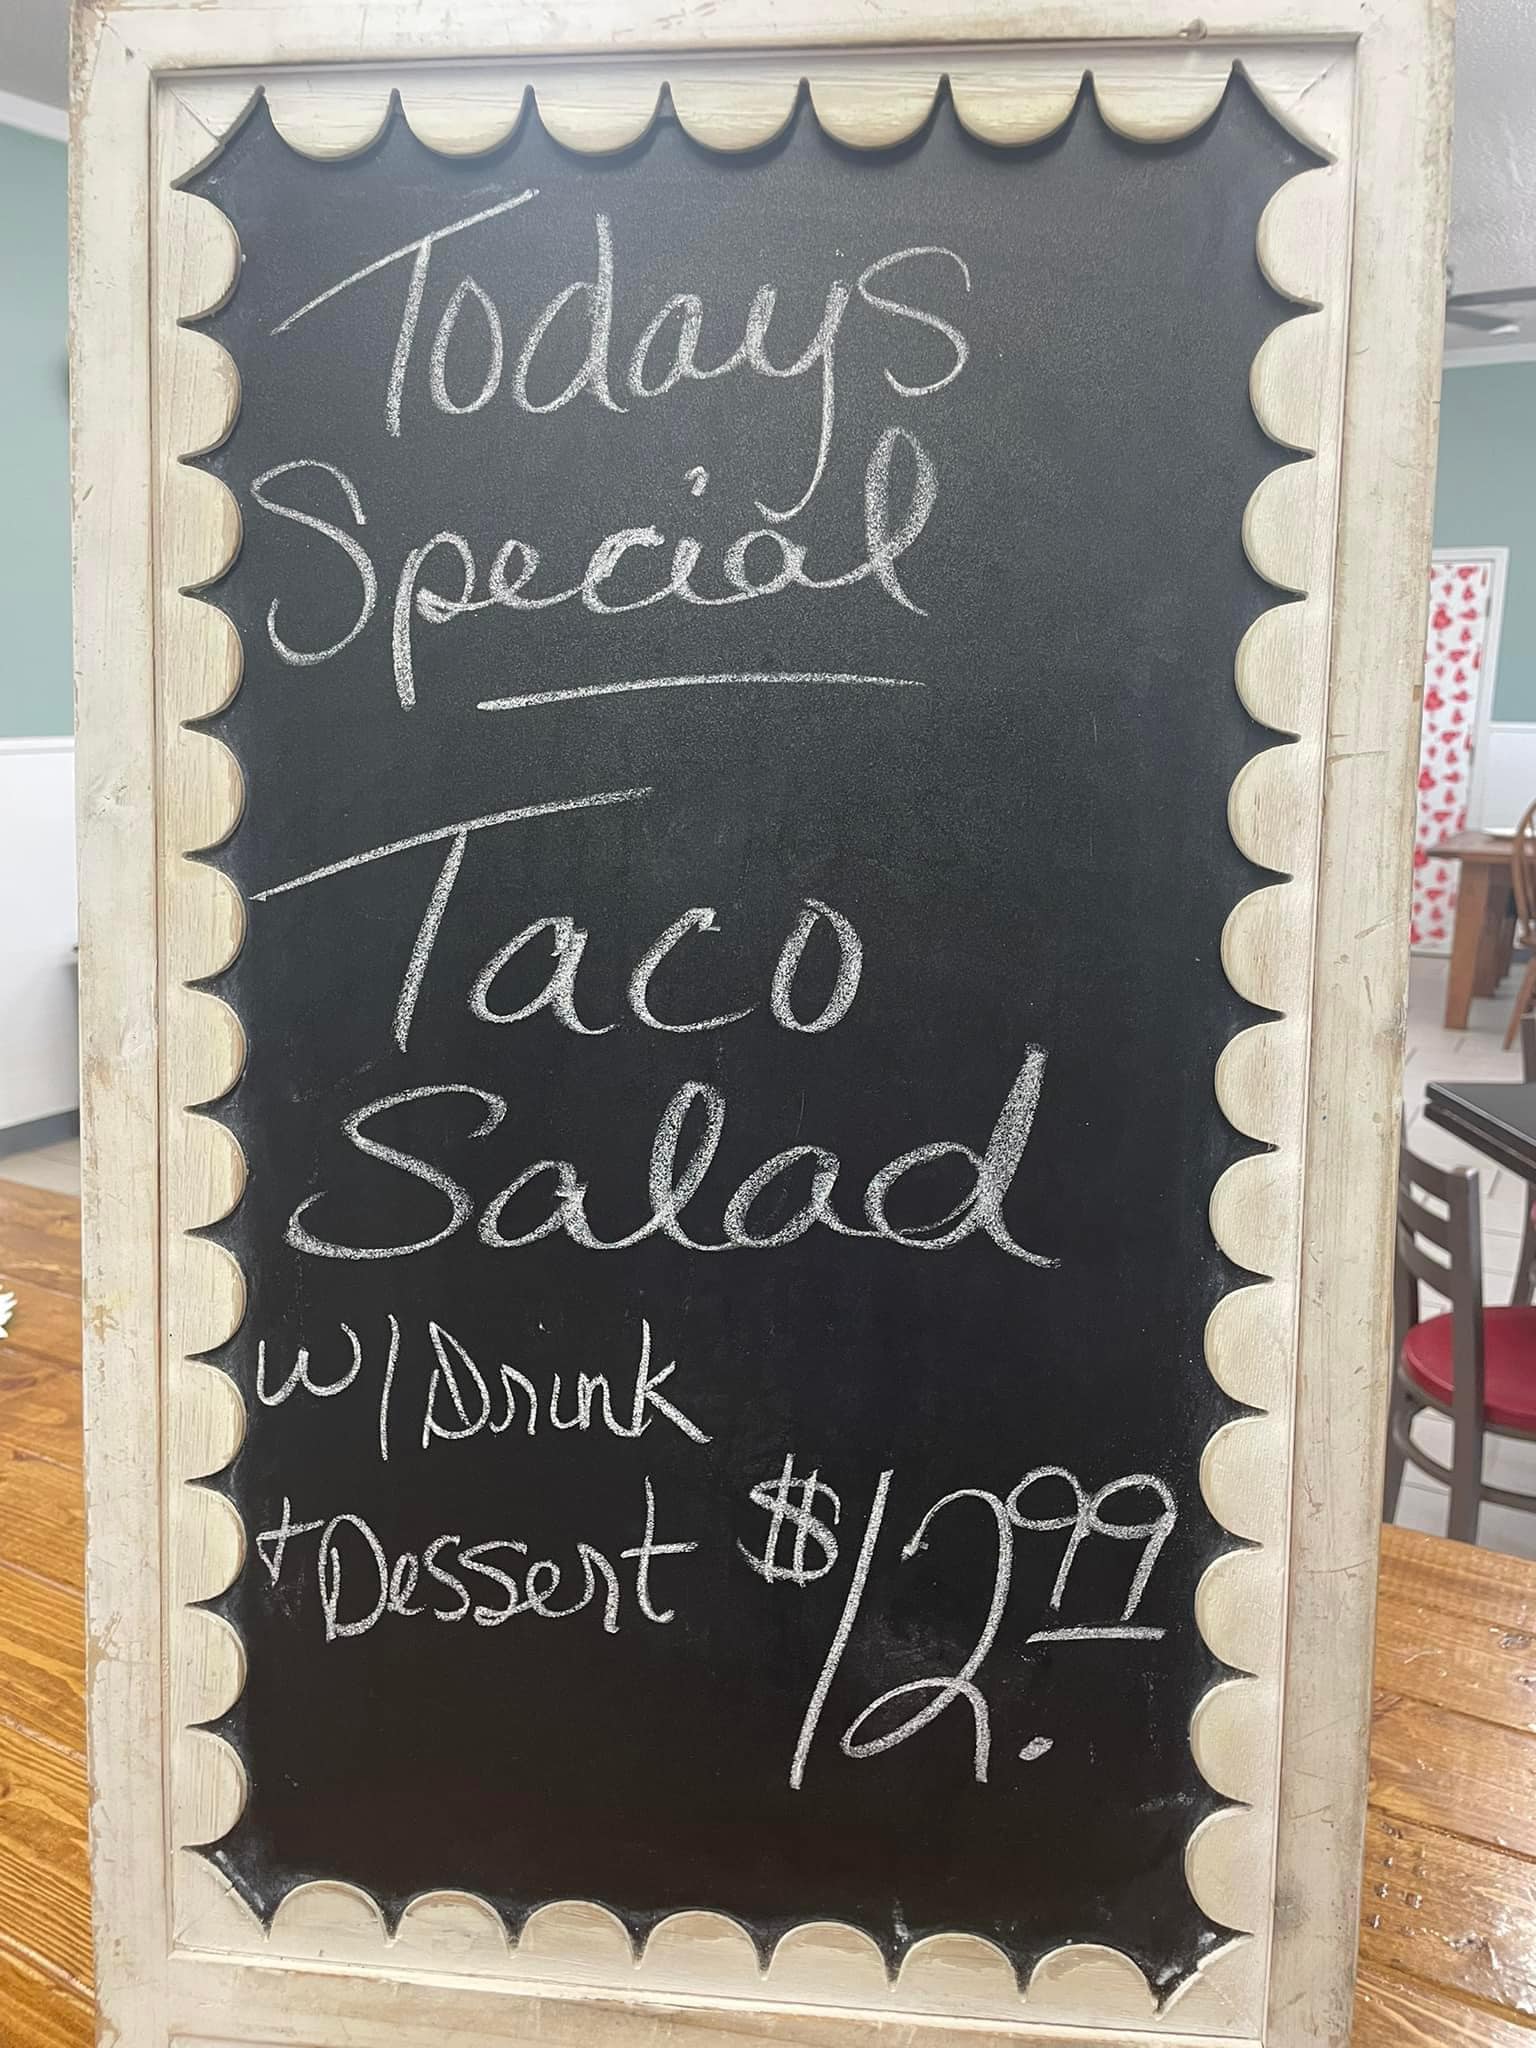 Todays
Special
Taco
Salad
w/ Drink
+ Dessert $12.99